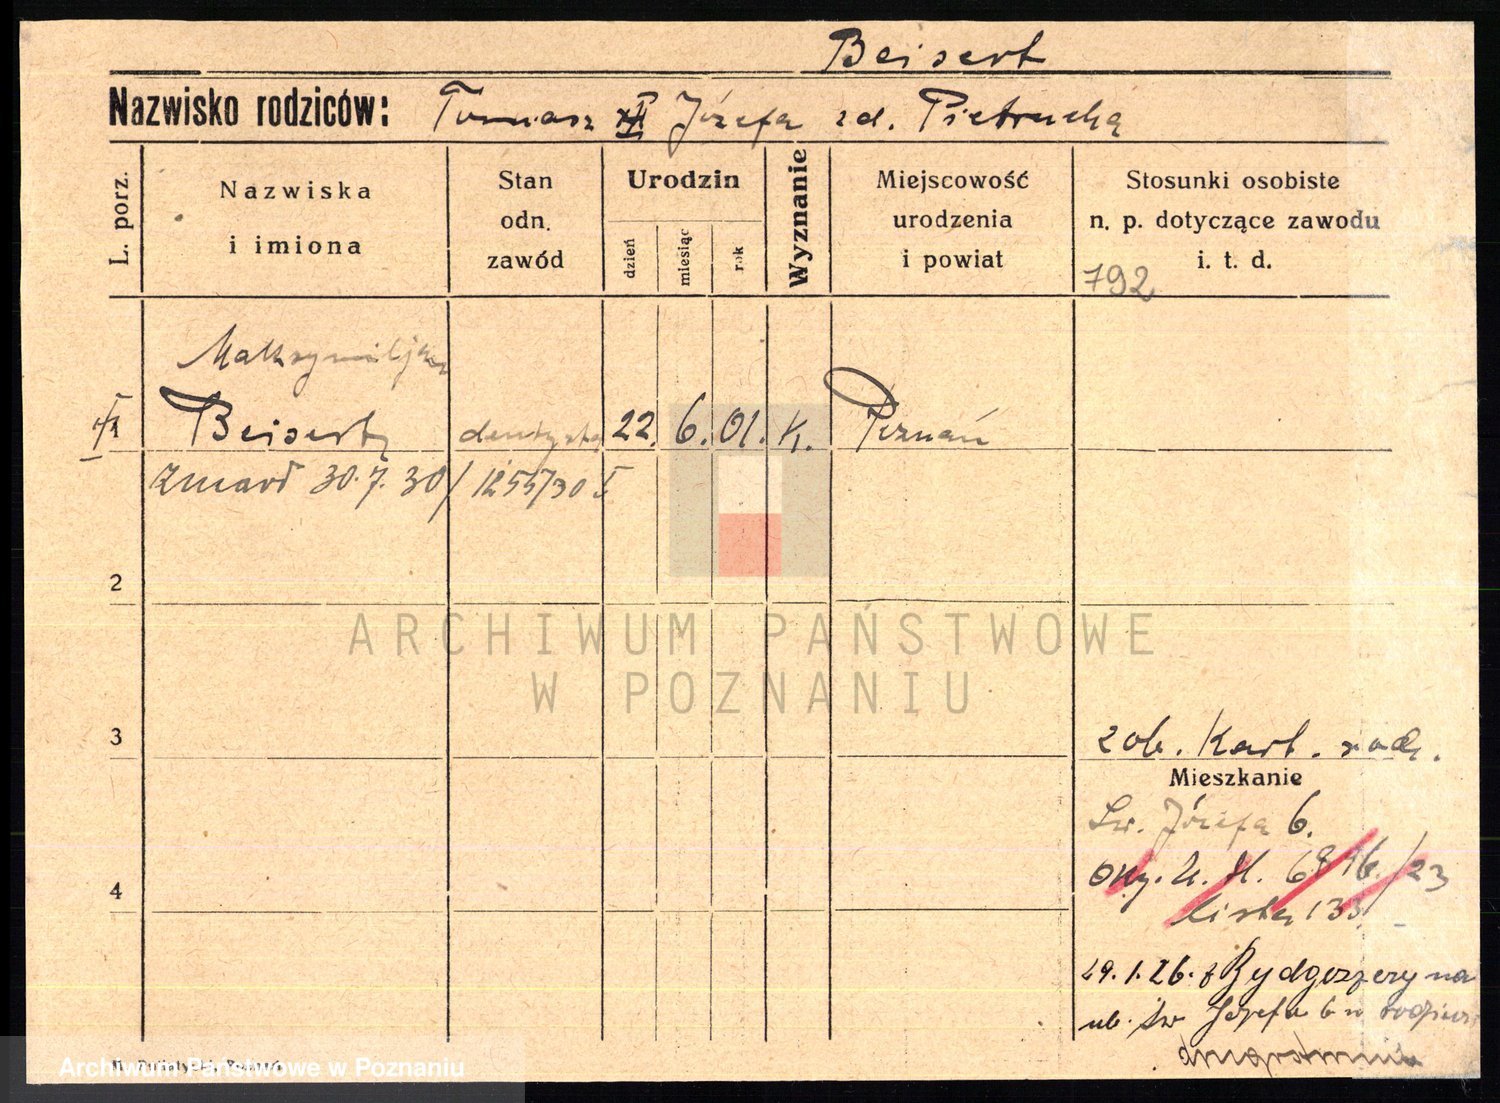 Beisert
Nazwisko rodziców: Tomasz Józefa zd. Pietrucha
L. porz.
Nazwiska
i imiona
Stan
odn.
zawód
Urodzin
dzień
miesiąc
rok
Wyznanie
Miejscowość
urodzenia
i powiat
Stosunki osobiste
n. p. dotyczące zawodu
i. t. d.
792
Maksymiljan
1 Beisert dentysta 22. 6. 01. k. Poznań
zmarł 30.7.30 / 1255/30 I
2
3
4
zob. Kart. rodz.
Mieszkanie
Św. Józefa 6.
lista 133
29.1.26. z Bydgoszczy na
ul. Św Józefa 6 u
ARCHIWUM PAŃSTWOWE
W POZNANIU
Archiwum Państwowe w Poznaniu